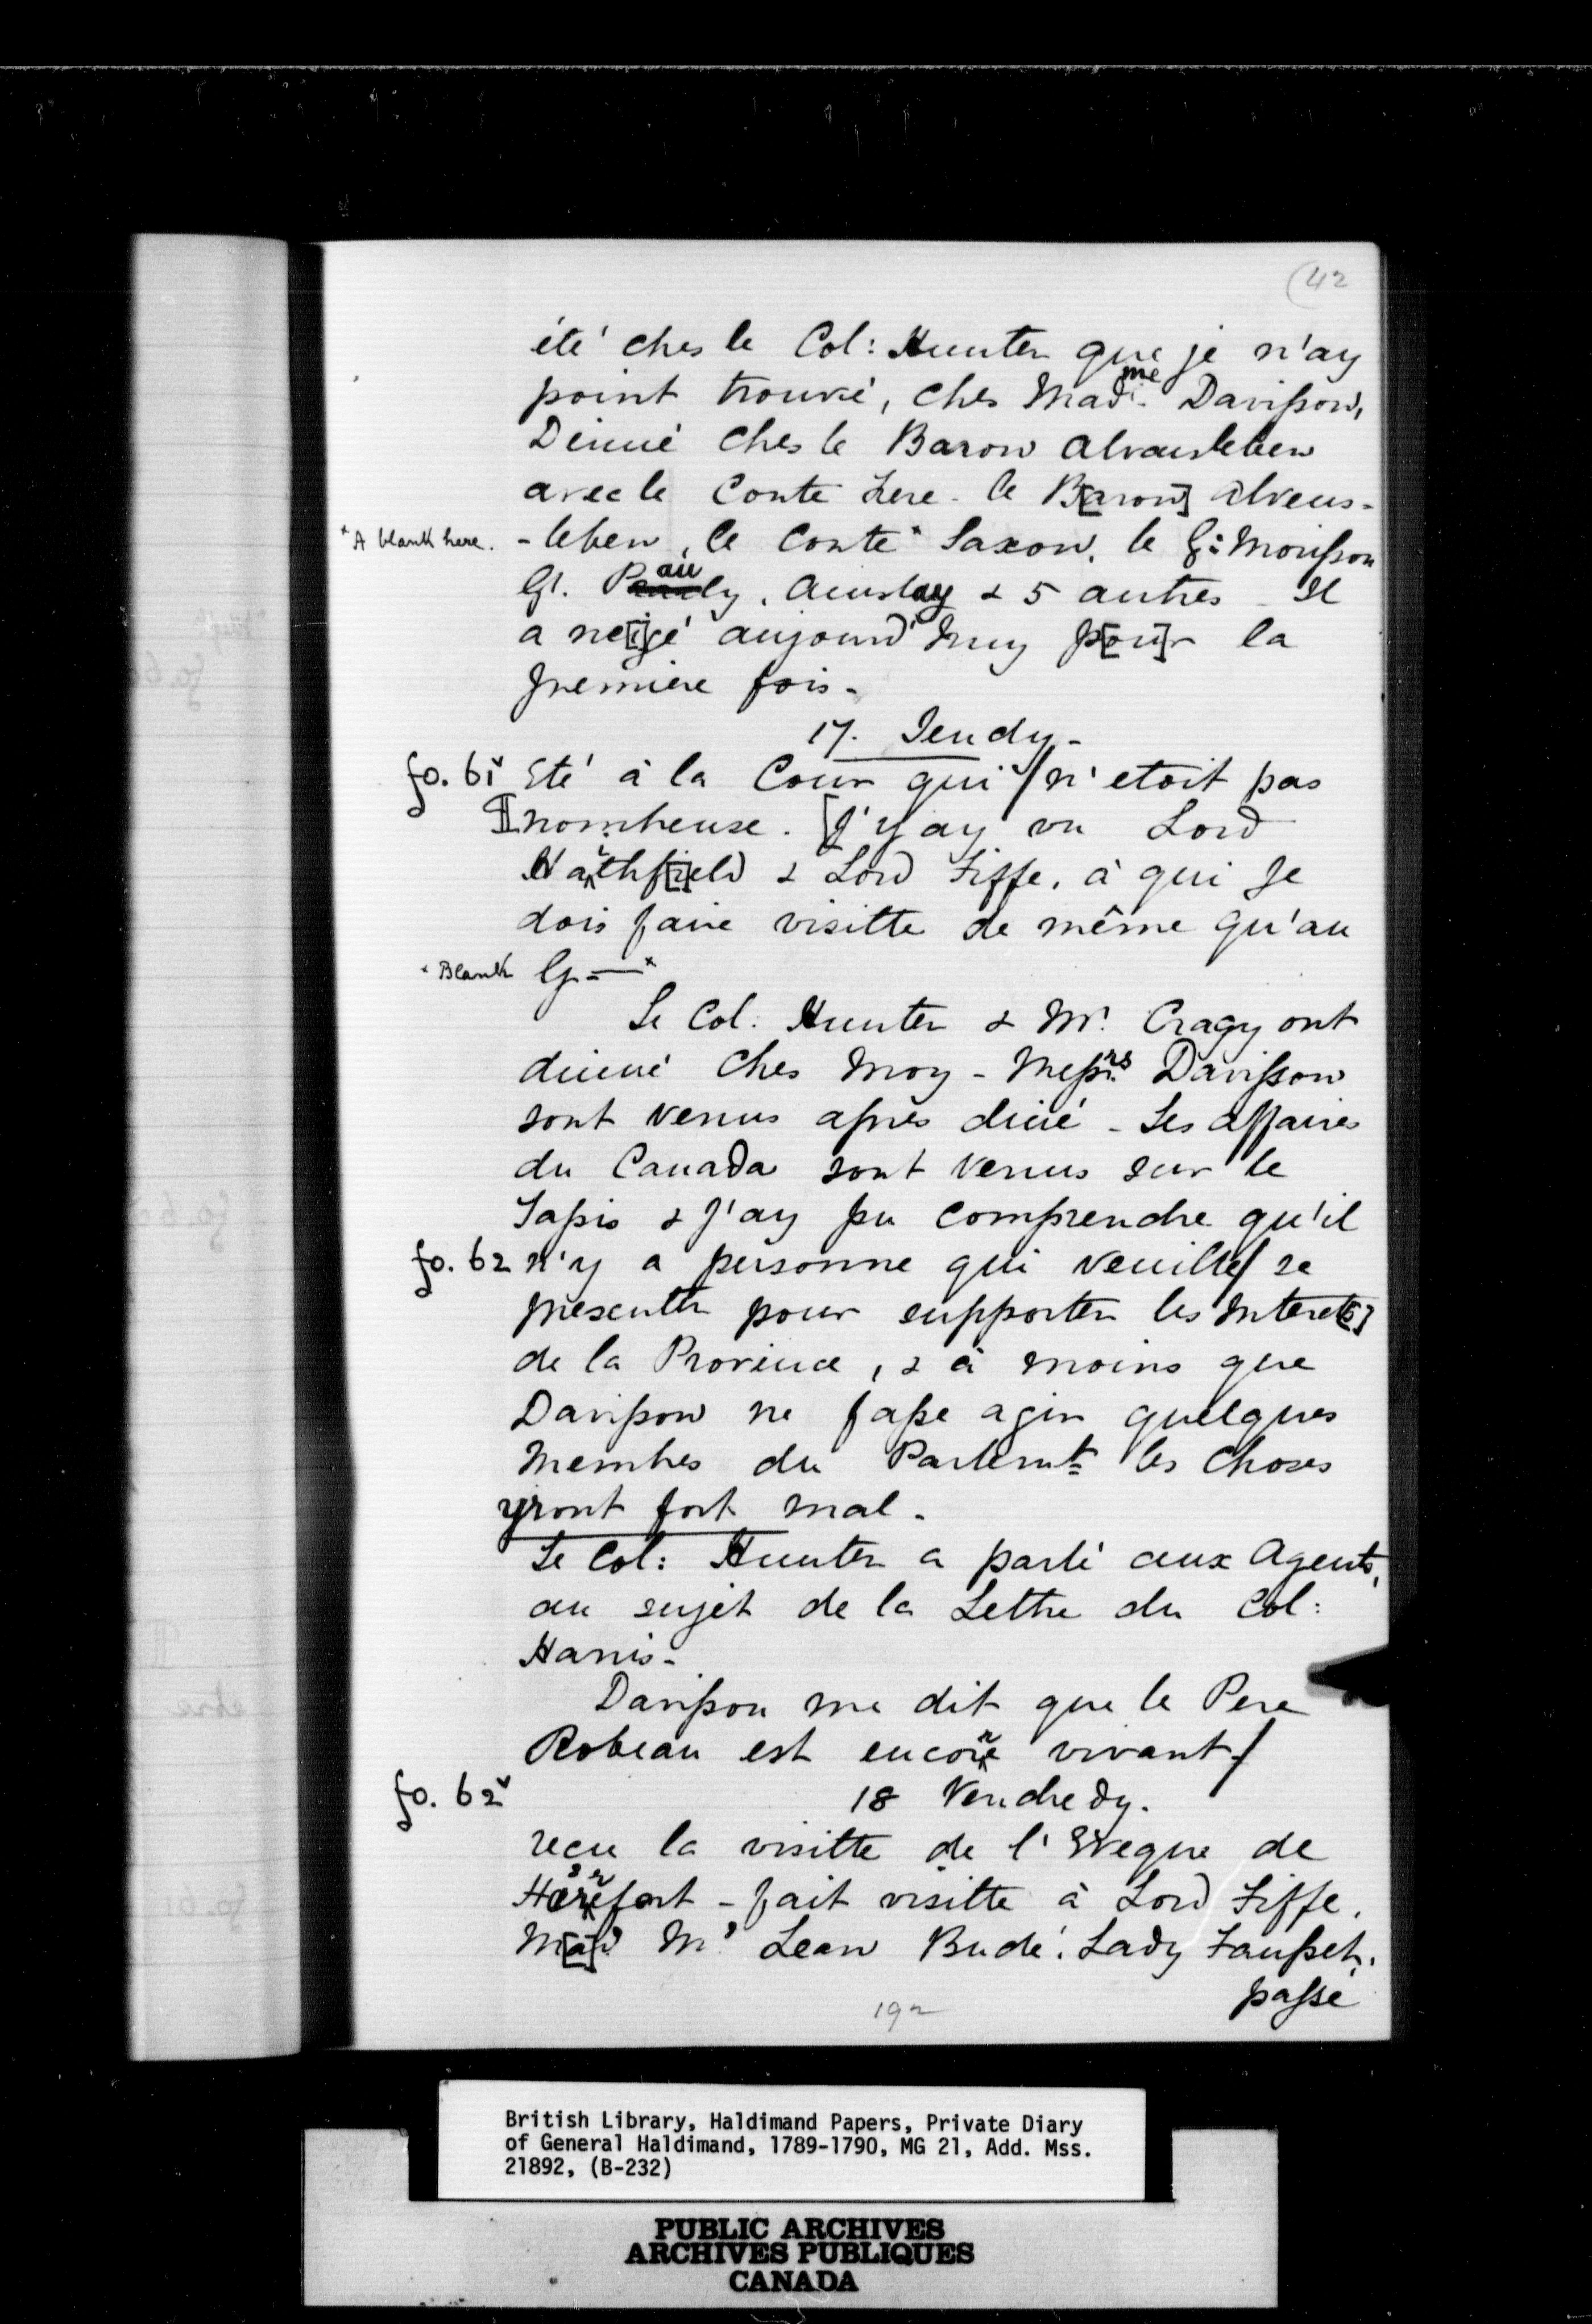 (42
été ches le Col: Hunter que je n'ay
point trouvé, ches Madme. Davisson,
Dinné ches le Baron Alvausleben
avec le Conte Lere - le B[aron] Alvens-
* A blank here. -leben, le Conte * Saxon, le G: Morisson
Gl. Pauly, Ainslay & 5 autres - Il
a ne[i]gé aujourd'huy p[ou]r la
premiere fois -
17. Jeudy -
fo. 61v Eté à la Cour qui / n'etoit pas
nombreuse. [J'y ay vu Lord
Haithf[i]eld & Lord Fiffe, à qui Je
dois faire visitte de même qu'au
* Blank G - — *
Le Col. Hunter & Mr. Cragy ont
dinné ches moy - Messrs Davisson
sont venus après diné - Les affaires
du Canada sont venus sur le
Tapis & J'ay pu comprendre qu'il
fo. 62 n'y a personne qui veuille / se
presenter pour supporter les Interet[s]
de la Province, & à moins que
Davisson ne fasse agir quelques
Membres du Parlemt les Choses
yront fort mal -
Le Col: Hunter a parlé aux Agents,
au sujet de la Lettre du Col:
Harris -
Davisson me dit que le Pere
Robeau est encore vivant /
fo. 62v 18 Vendredy.
recu la visitte de l'Eveque de
Herefort - fait visitte à Lord Fiffe,
M[a]d Mr Lean Budé. Lady Fausset,
passé
192
British Library, Haldimand Papers, Private Diary
of General Haldimand, 1789-1790, MG 21, Add. Mss.
21892, (B-232)
PUBLIC ARCHIVES
ARCHIVES PUBLIQUES
CANADA